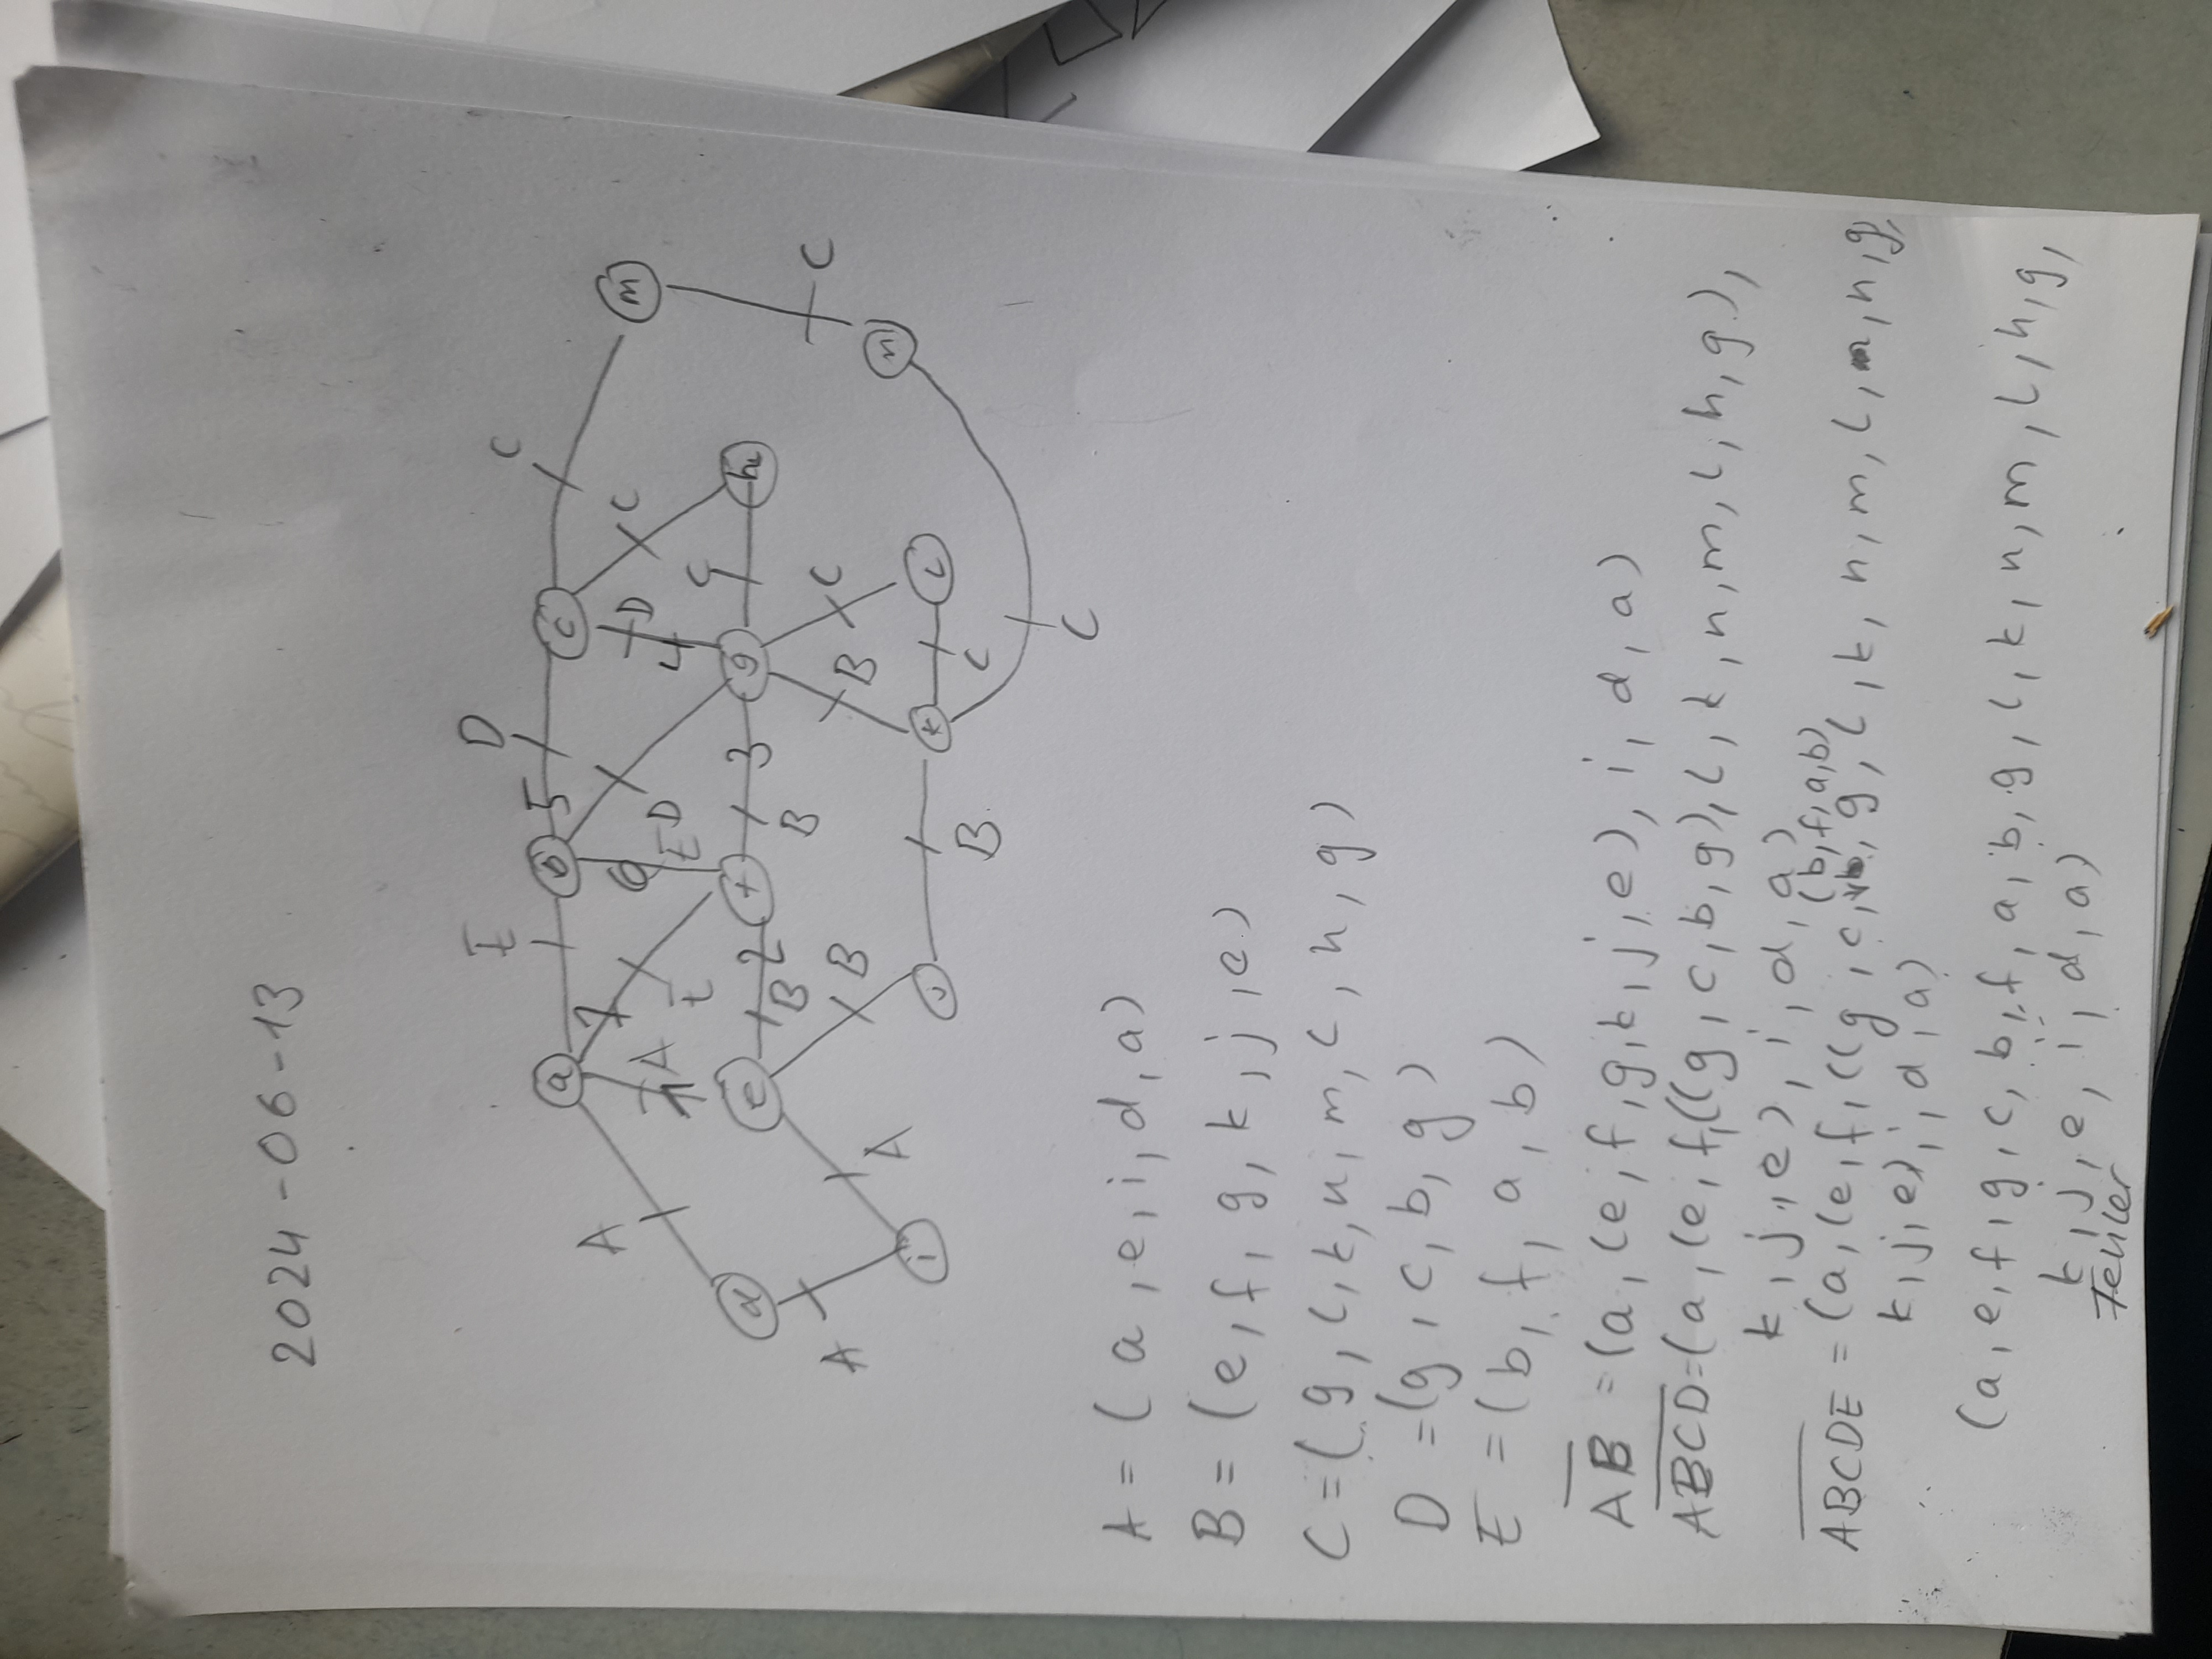 2024-06-13
E D C
a b 5 c m
A 7 6 D C
A 1 E E D 4 5
d e 2 f 3 g h
B B C
A A B B C n
i j k l
B C C
A = (a, e, i, d, a)
B = (e, f, g, k, j, e)
C = (g, l, k, n, m, c, h, g)
D = (g, c, b, g)
E = (b, f, a, b)
AB = (a, (e, f, g, k, j, e), i, d, a)
ABCD = (a, (e, f, ((g, c, b, g), l, k, n, m, l, h, g),
k, j, e), i, d, a)
(b, f, a, b)
ABCDE = (a, (e, f, ((g, c, g, l, k, n, m, l, h, g,
k, j, e), i, d, a)
(a, e, f, g, c, b, f, a, b, g, l, k, n, m, l, h, g,
k, j, e, i, d, a)
Fehler